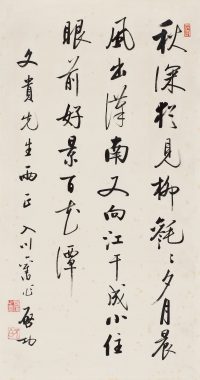 秋深犹见柳毿毿夕月晨
风出汉南又向江干成小住
眼前好景百花潭
文贵先生两正 入川六首之一 启功